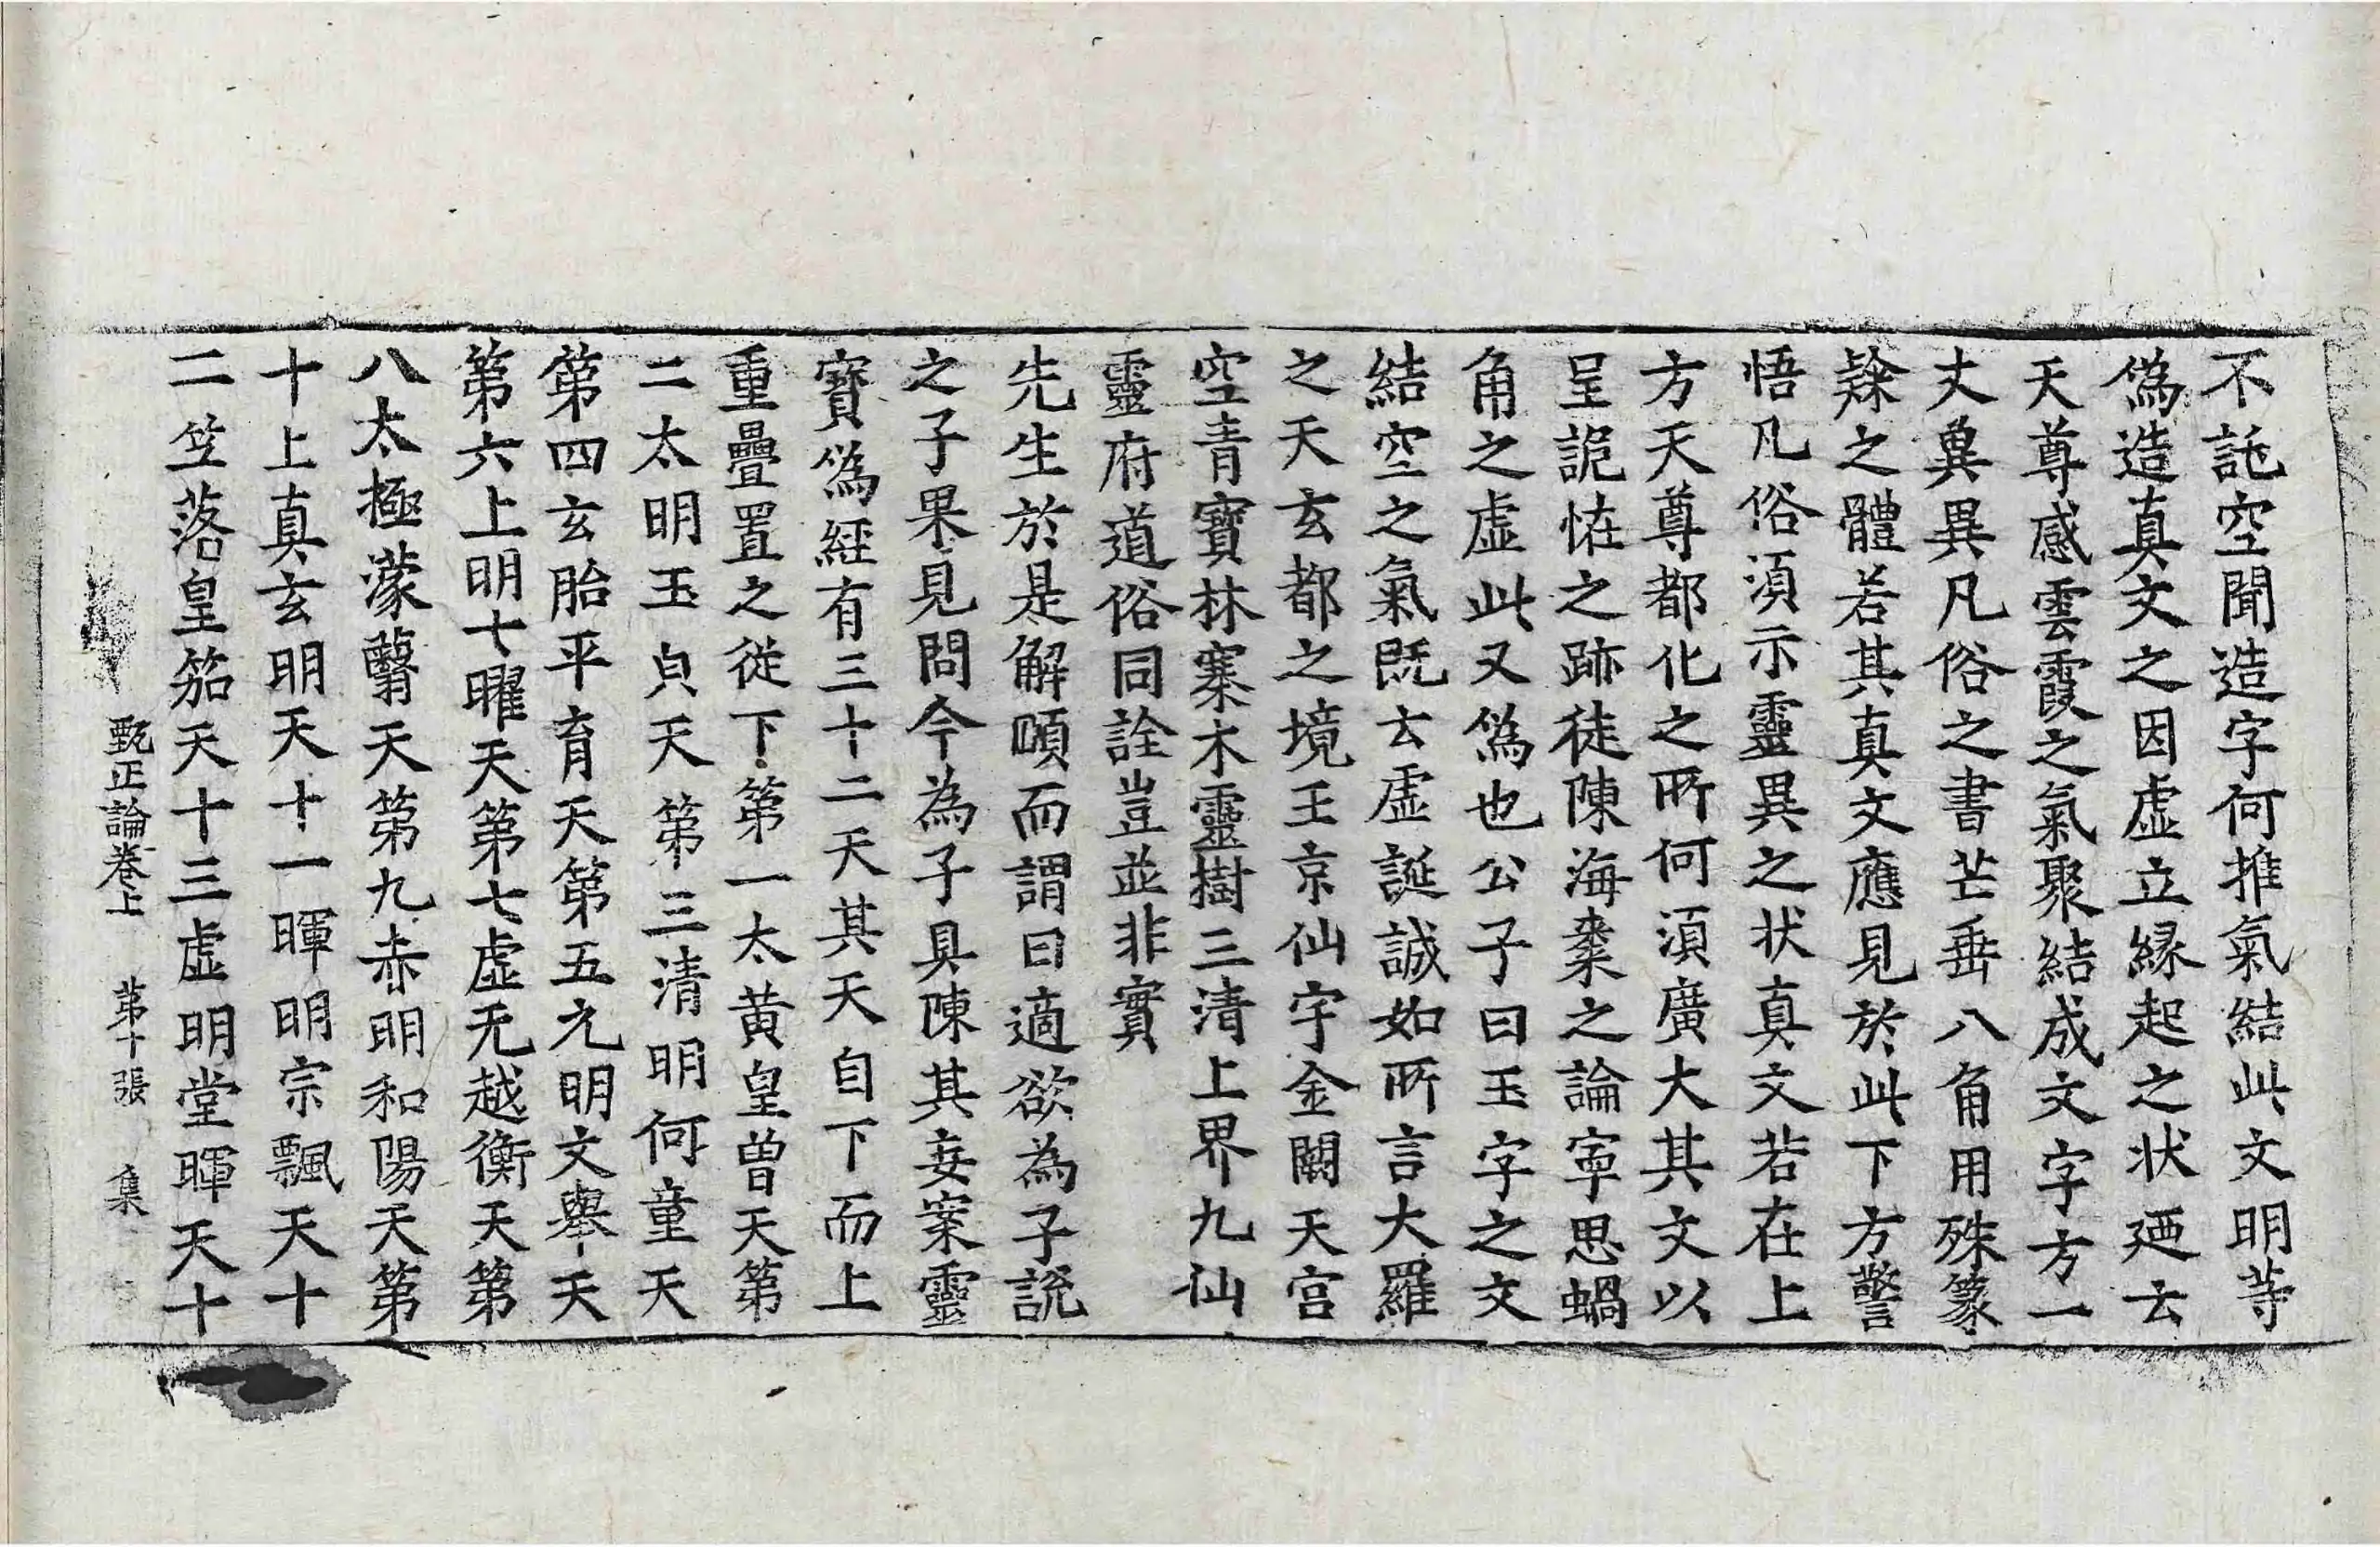 不託空聞造字何推氣結此文明等
偽造真文之因虛立縁起之状迺云
天尊感雲霞之氣聚結成文字方一
丈兾異凡俗之書芒垂八角用殊篆
隸之體若其真文應見於此下方警
悟凡俗湏示靈異之状真文若在上
方天尊都化之所何湏廣大其文以
呈詭恠之跡徒陳海棗之論寧思蝸
角之虛此又偽也公子曰玉字之文
結空之氣既云虛誕誠如所言大羅
之天玄都之境玉京仙宇金闕天宮
空青寶林騫木靈樹三清上界九仙
靈府道俗同詮豈並非實
先生於是解頤而謂曰適欲為子說
之子果見問今為子具陳其妄案靈
寶為經有三十二天其天自下而上
重疊置之從下第一太黄皇曾天第
二太明玉貞天第三清明何童天
第四玄胎平育天第五元明文舉天
第六上明七曜天第七虛无越衡天第
八太極濛翳天第九赤明和陽天第
十上真玄明天十一暉明宗飄天十
二笠落皇笳天十三虛明堂暉天十
甄正論卷上 第十張 集